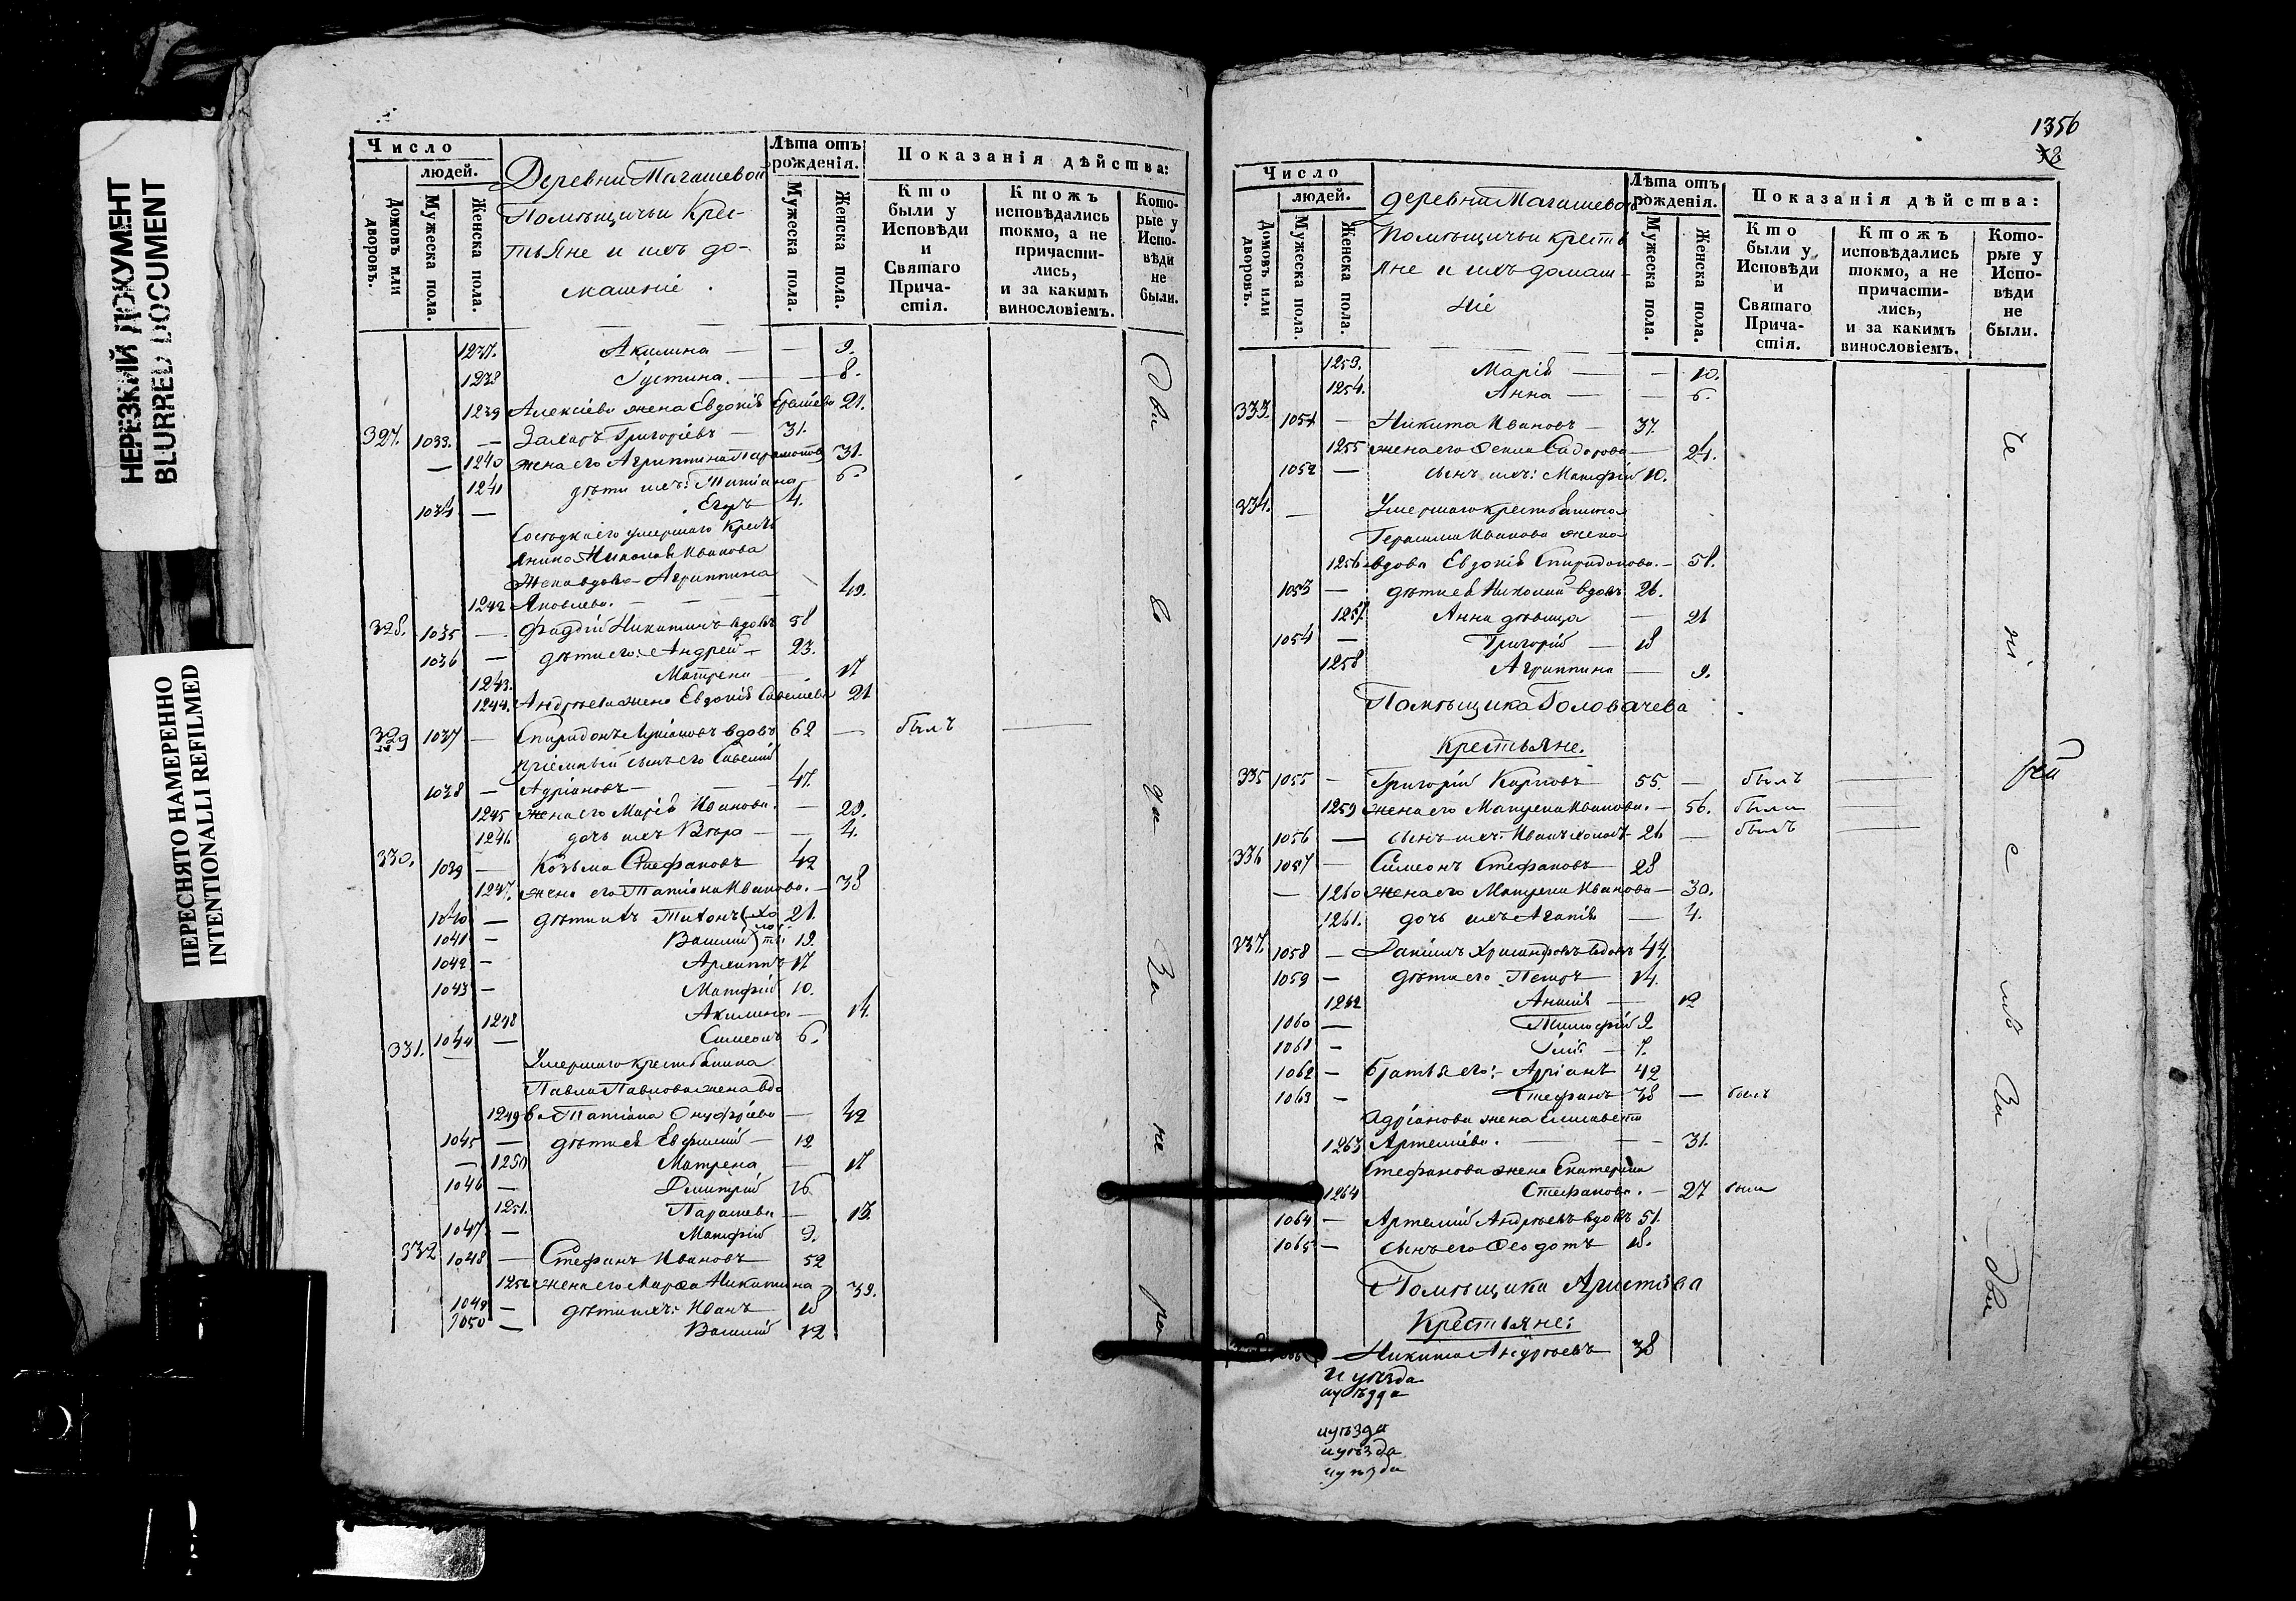 НЕРЕЗКИЙ ДОКУМЕНТ
BLURRED DOCUMENT
ПЕРЕСНЯТО НАМЕРЕННО
INTENTIONALLI REFILMED
Число
людей.
Домовъ или дворовъ.
Мужеска пола.
Женска пола.
Деревни Магашевой
Помѣщичьи Крес-
тьяне и ихъ до-
машніе.
Лѣта отъ рожденія.
Мужеска пола.
Женска пола.
Показанія дѣйства:
Кто были у Исповѣди и Святаго Прича-стія.
Ктожъ исповѣдались токмо, а не причасти-лись, и за какимъ винословіемъ.
Кото-рые у Испо-вѣди не были.
1237. Акилина — — 9.
1238 Іустина. — — 8.
1239 Алексіева жена Евдокія 21.
327. 1033. — Захаръ Григоріевъ — 31.
— 1240 жена его Агриппина 31.
1241 дѣти ихъ: Татіана 6.
1034 — Егоръ 4.
умершаго Кресть
янина Николая Иванова
Жена вдова Агриппина
1242 Яковлева. — — — 49.
328. 1035 — Фаддей Никитинъ вдовъ 58
1036 — дѣти его: Андрей — 23.
1243. Матрена — 17
1244. Андреева жена Евдокія Савельева 21
329 1037 — Спиридонъ вдовъ 62 — былъ —
пріемный сынъ его Савелій
1038 — Адріановъ — — 47.
1245 жена его Марія Иванова. — 29.
1246 дочь ихъ Вѣра — — 4.
330. 1039 — Козьма Стефановъ 42
1247. жена его Татіана Иванова. — 38
1040 — дѣти ихъ Тихонъ 21.
1041 — Василій 19.
1042 — Архиппъ 17
1043 — Матфій 10.
1248 Акилина — 14.
331. 1044 — Симеонъ 6.
Умершаго крестьянина
Павла Павлова жена вдо
1249 ва Татіана Онуфріева — 42
1045 — дѣти ея Евфимій — 19
— 1250 Матрена — 17
1046 — Димитрій 16
1251. Парасева — 13.
1047 — Матфій 9.
332 1048 — Стефанъ Ивановъ 52
1252 жена его Марѳа Никитина 39.
1049 — дѣти ихъ: Иванъ 18
1050 — Василій 12
1356
Число
людей.
Домовъ или дворовъ.
Мужеска пола
Женска пола.
деревни Магашевой
Помѣщичьи кресть
яне и ихъ домаш-
ніе
Лѣта отъ рожденія.
Мужеска пола.
Женска пола.
Показанія дѣйства:
Кто были у Исповѣди и Святаго Прича-стія.
Ктожъ исповѣдались токмо, а не причасти-лись, и за какимъ винословіемъ.
Кото-рые у Испо-вѣди не были.
1253. Марія — — 10.
1254. Анна — — 6.
333. 1051 — Никита Ивановъ — 37.
1255 жена его Сидорова — 24.
1052 — сынъ ихъ: Матфій 10.
334. — Умершаго крестьянина
Герасима Иванова жена
1256 вдова Евдокія Спиридонова. — 58.
1053 — дѣти ея Николай вдовъ 26.
1257. Анна дѣвица — 21
1054 — Григорій — 18
1258 Агриппина — 9.
Помѣщика Головачева
Крестьяне.
335 1055 — Григорій Карповъ 55. — былъ —
1259 жена его Матрена Иванова. — 56. была —
1056 — сынъ ихъ: Иванъ холостъ 26 — былъ —
336 1057 — Симеонъ Стефановъ 28
— 1260 жена его Матрена Иванова — 30.
1261. дочь ихъ Агапія — 4.
337. 1058 — Даніилъ вдовъ 44.
1059 — дѣти его Петръ 14.
1262 — 12
1060 — Тимофій 9
1061 — 7.
1062 — Братья его: Адріанъ 42
1063 — Стефанъ 38 — былъ
Адріанова жена Елисавета
1263 Артеміева. — — 31.
Стефанова жена Екатерина
1264 Стефанова. — 27 была
1064 — Артемій Андреевъ вдовъ 51.
1065 — сынъ его Ѳеодотъ 18.
Помѣщика Аристова
Крестьяне:
— Никита Андреевъ 38
и уѣзда
и уѣзда
и уѣзда
и уѣзда
и уѣзда